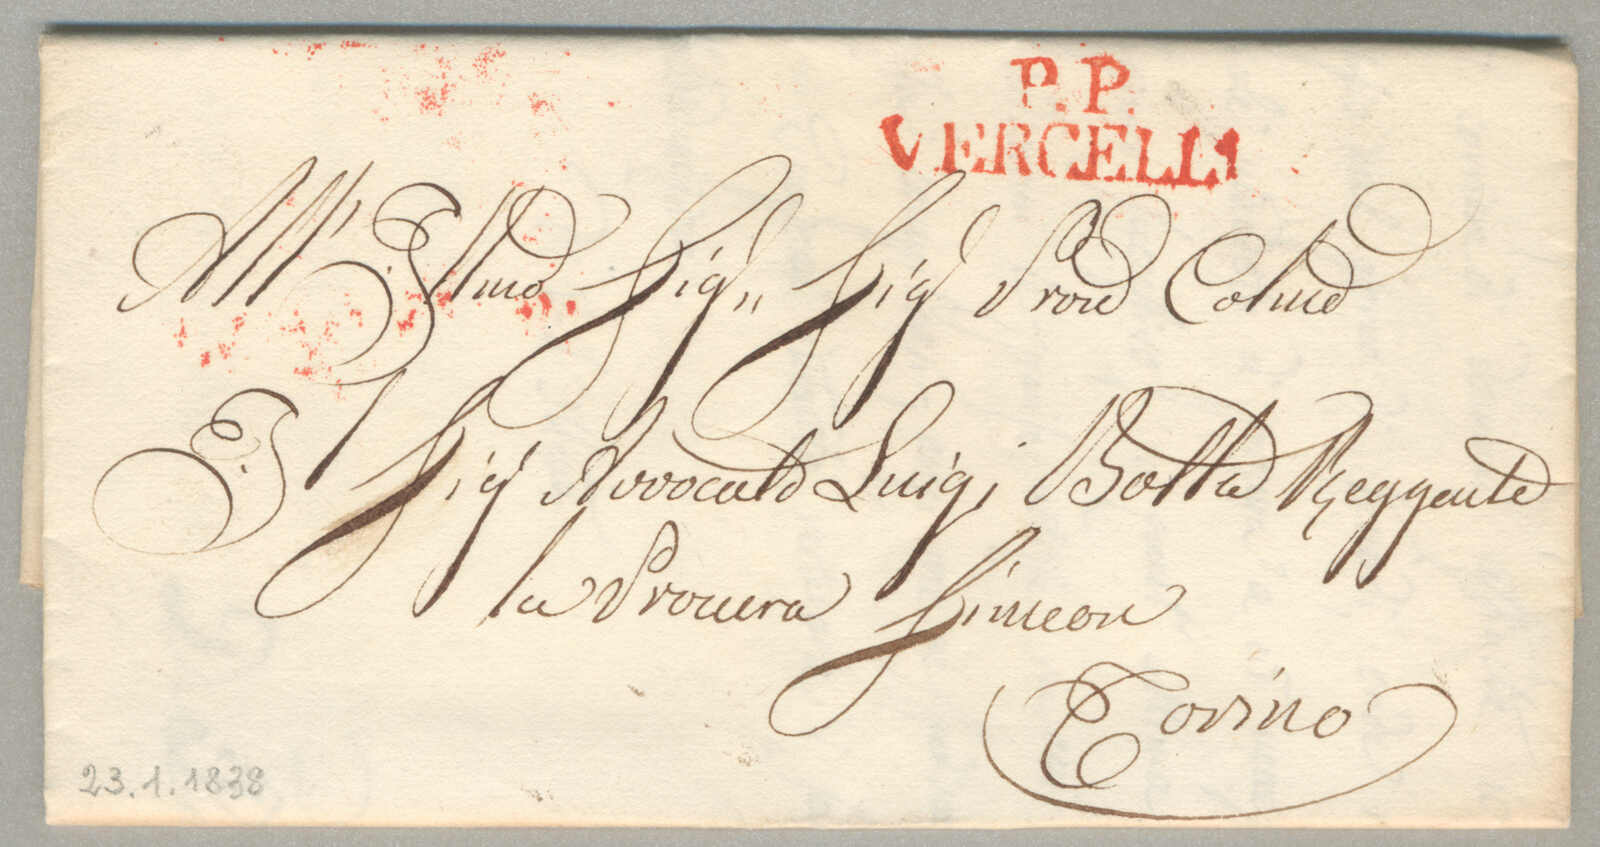 P. P.
VERCELLI
All' Illmo Sig.r Sig.r Prone Colmo
Il Sig.r Avvocato Luigi Botta Reggente
la Procura Simeon
Torino
23.1.1838